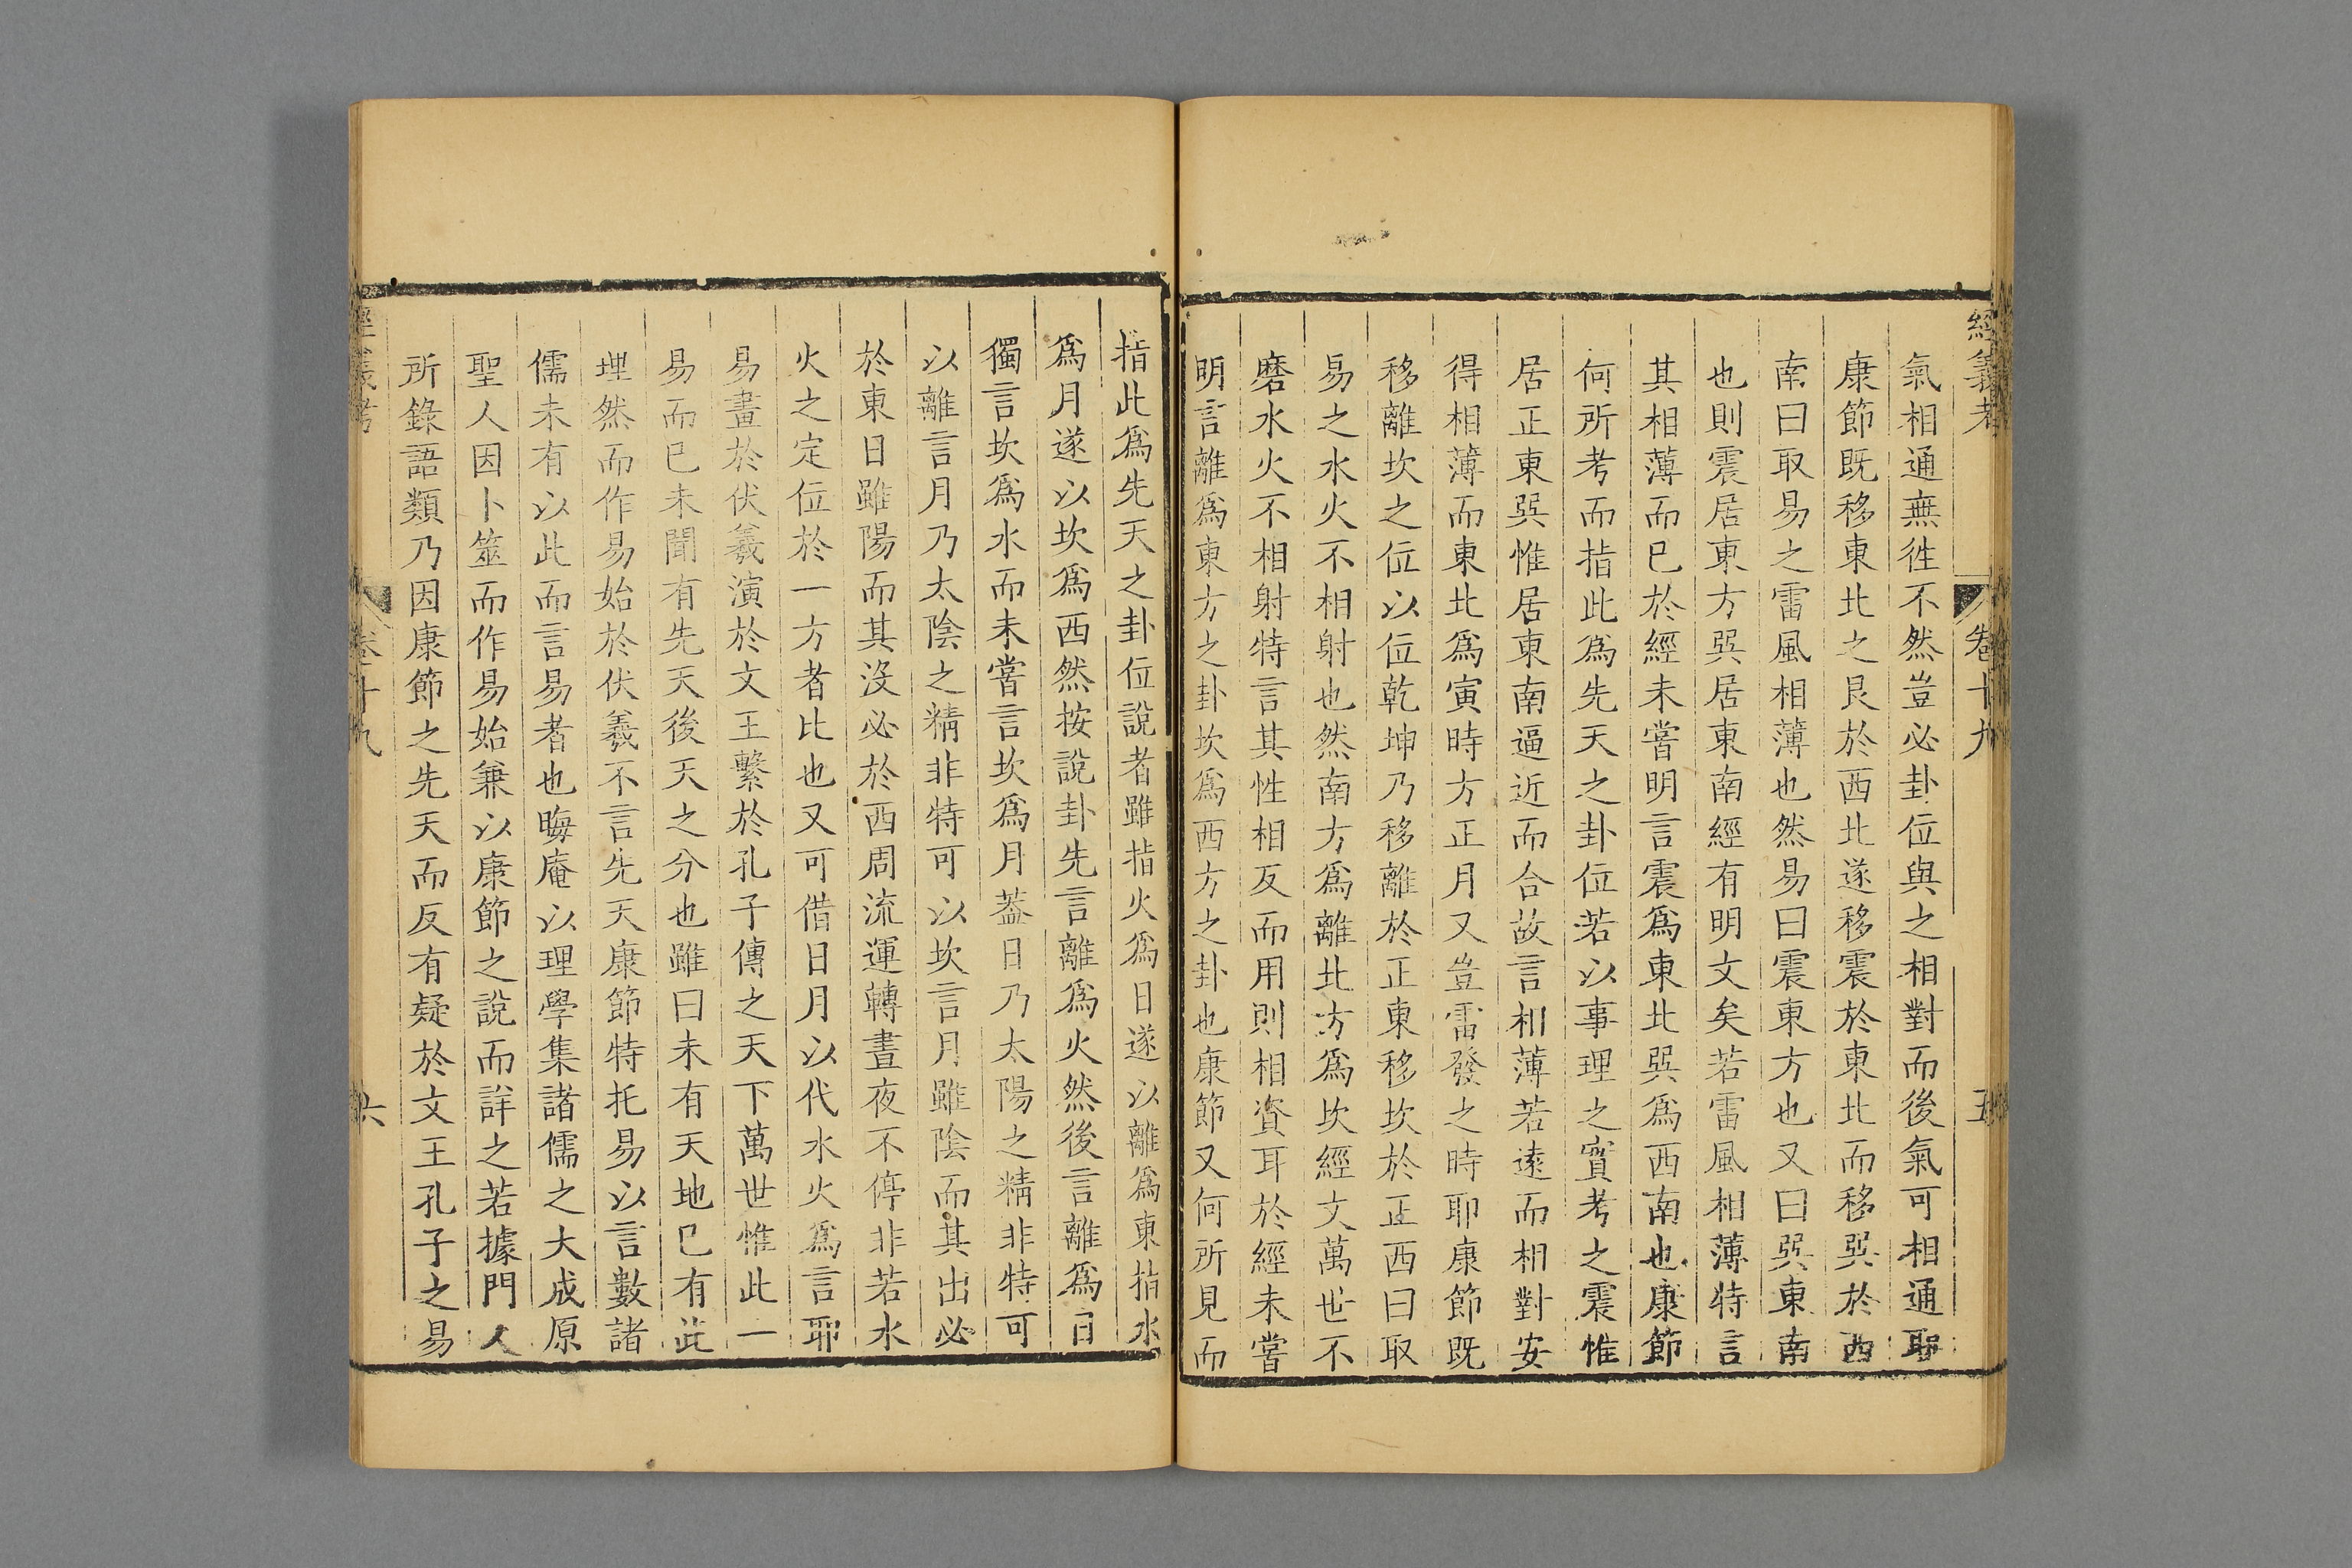 經義考 卷十九 五
氣相通無徃不然豈必卦位與之相對而後氣可相通耶
康節既移東北之艮於西北遂移震於東北而移巽於西
南曰取易之雷風相薄也然易曰震東方也又曰巽東南
也則震居東方巽居東南經有明文矣若雷風相薄特言
其相薄而已於經未嘗明言震爲東北巽爲西南也康節
何所考而指此爲先天之卦位若以事理之實考之震惟
居正東巽惟居東南逼近而合故言相薄若遠而相對安
得相薄而東北爲寅時方正月又豈雷發之時耶康節既
移離坎之位以位乾坤乃移離於正東移坎於正西曰取
易之水火不相射也然南方爲離北方爲坎經文萬世不
磨水火不相射特言其性相反而用則相資耳於經未嘗
明言離爲東方之卦坎爲西方之卦也康節又何所見而
指此爲先天之卦位說者雖指火爲日遂以離爲東指水
爲月遂以坎爲西然按說卦先言離爲火然後言離爲日
獨言坎爲水而未嘗言坎爲月蓋日乃太陽之精非特可
以離言月乃太陰之精非特可以坎言月雖陰而其出必
於東日雖陽而其沒必於西周流運轉晝夜不停非若水
火之定位於一方者比也又可借日月以代水火爲言耶
易畫於伏羲演於文王繫於孔子傳之天下萬世惟此一
易而已未聞有先天後天之分也雖曰未有天地已有此
理然而作易始於伏羲不言先天康節特托易以言數諸
儒未有以此而言易者也晦庵以理學集諸儒之大成原
聖人因卜筮而作易始兼以康節之說而詳之若據門人
所錄語類乃因康節之先天而反有疑於文王孔子之易
經義考 卷十九 六